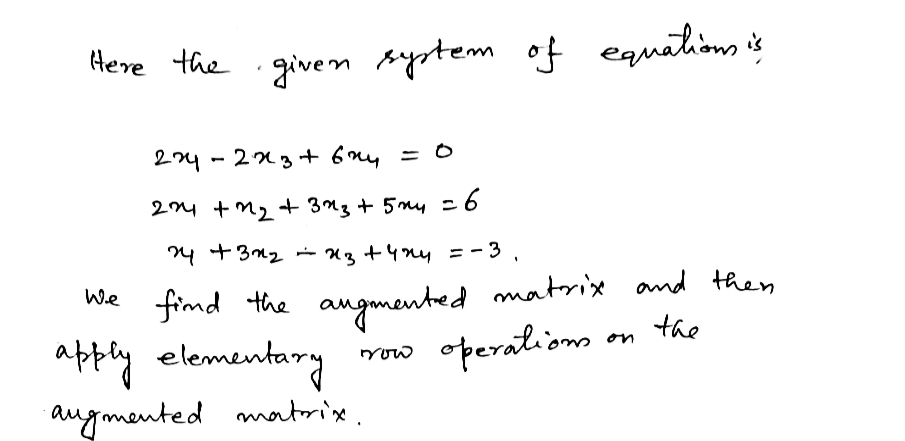 Here the given system of equations is
2x₁ - 2x₃ + 6x₄ = 0
2x₁ + x₂ + 3x₃ + 5x₄ = 6
x₁ + 3x₂ - x₃ + 4x₄ = -3.
We find the augmented matrix and then
apply elementary row operations on the
augmented matrix.